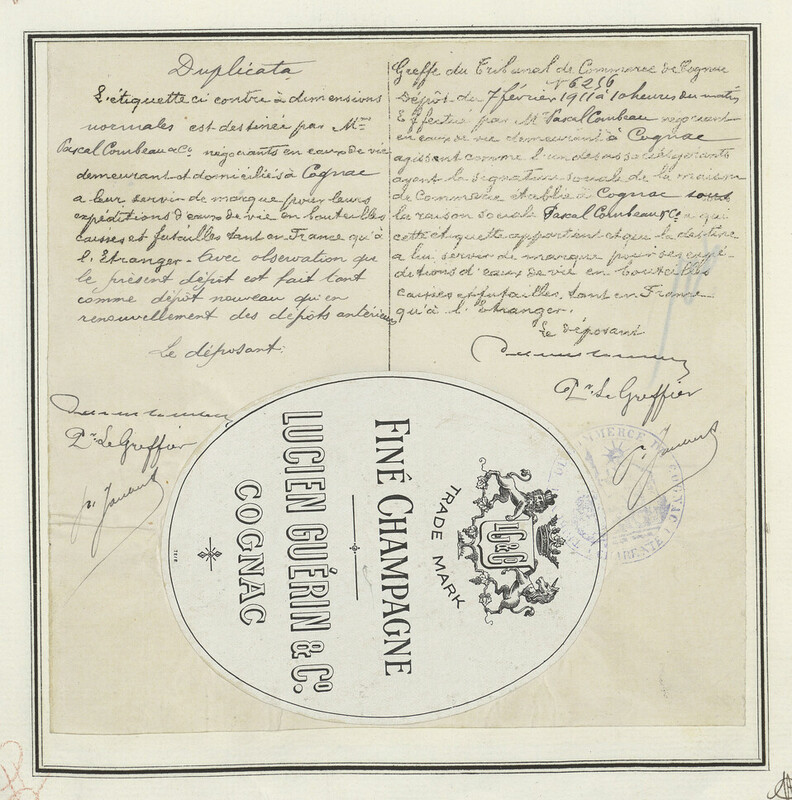 Duplicata
L'étiquette ci contre à dimensions
normales est destinée par M.
Pascal Combeau & Co. négociants en eaux de vie
demeurant et domiciliés à Cognac
a leur servir de marque pour leurs
expéditions d'eaux de vie en bouteilles
caisses et futailles tant en France qu'à
l'Etranger. Avec observation que
le présent dépôt est fait tant
comme dépôt nouveau qu'en
renouvellement des dépôts antérieurs
Le déposant:
Pr. Le Greffier
Greffe du Tribunal de Commerce de Cognac
N° 6256
Dépôt du 7 février 1911 à 10 heures du matin
Effectué par M. Pascal Combeau négociant
en eaux de vie demeurant à Cognac
agissant comme l'un des associés gérants
ayant la signature sociale de la maison
de Commerce établie à Cognac sous
la raison sociale Pascal Combeau & Co. a qui
cette étiquette appartient et qui la destine
a lui servir de marque pour ses expé-
ditions d'eaux de vie en bouteilles
caisses et futailles, tant en France
qu'à l'Etranger.
Le déposant
Pr. Le Greffier
COMMERCE DE COGNAC
CHARENTE
LG&Co
TRADE MARK
FINE CHAMPAGNE
LUCIEN GUÉRIN & Co.
COGNAC